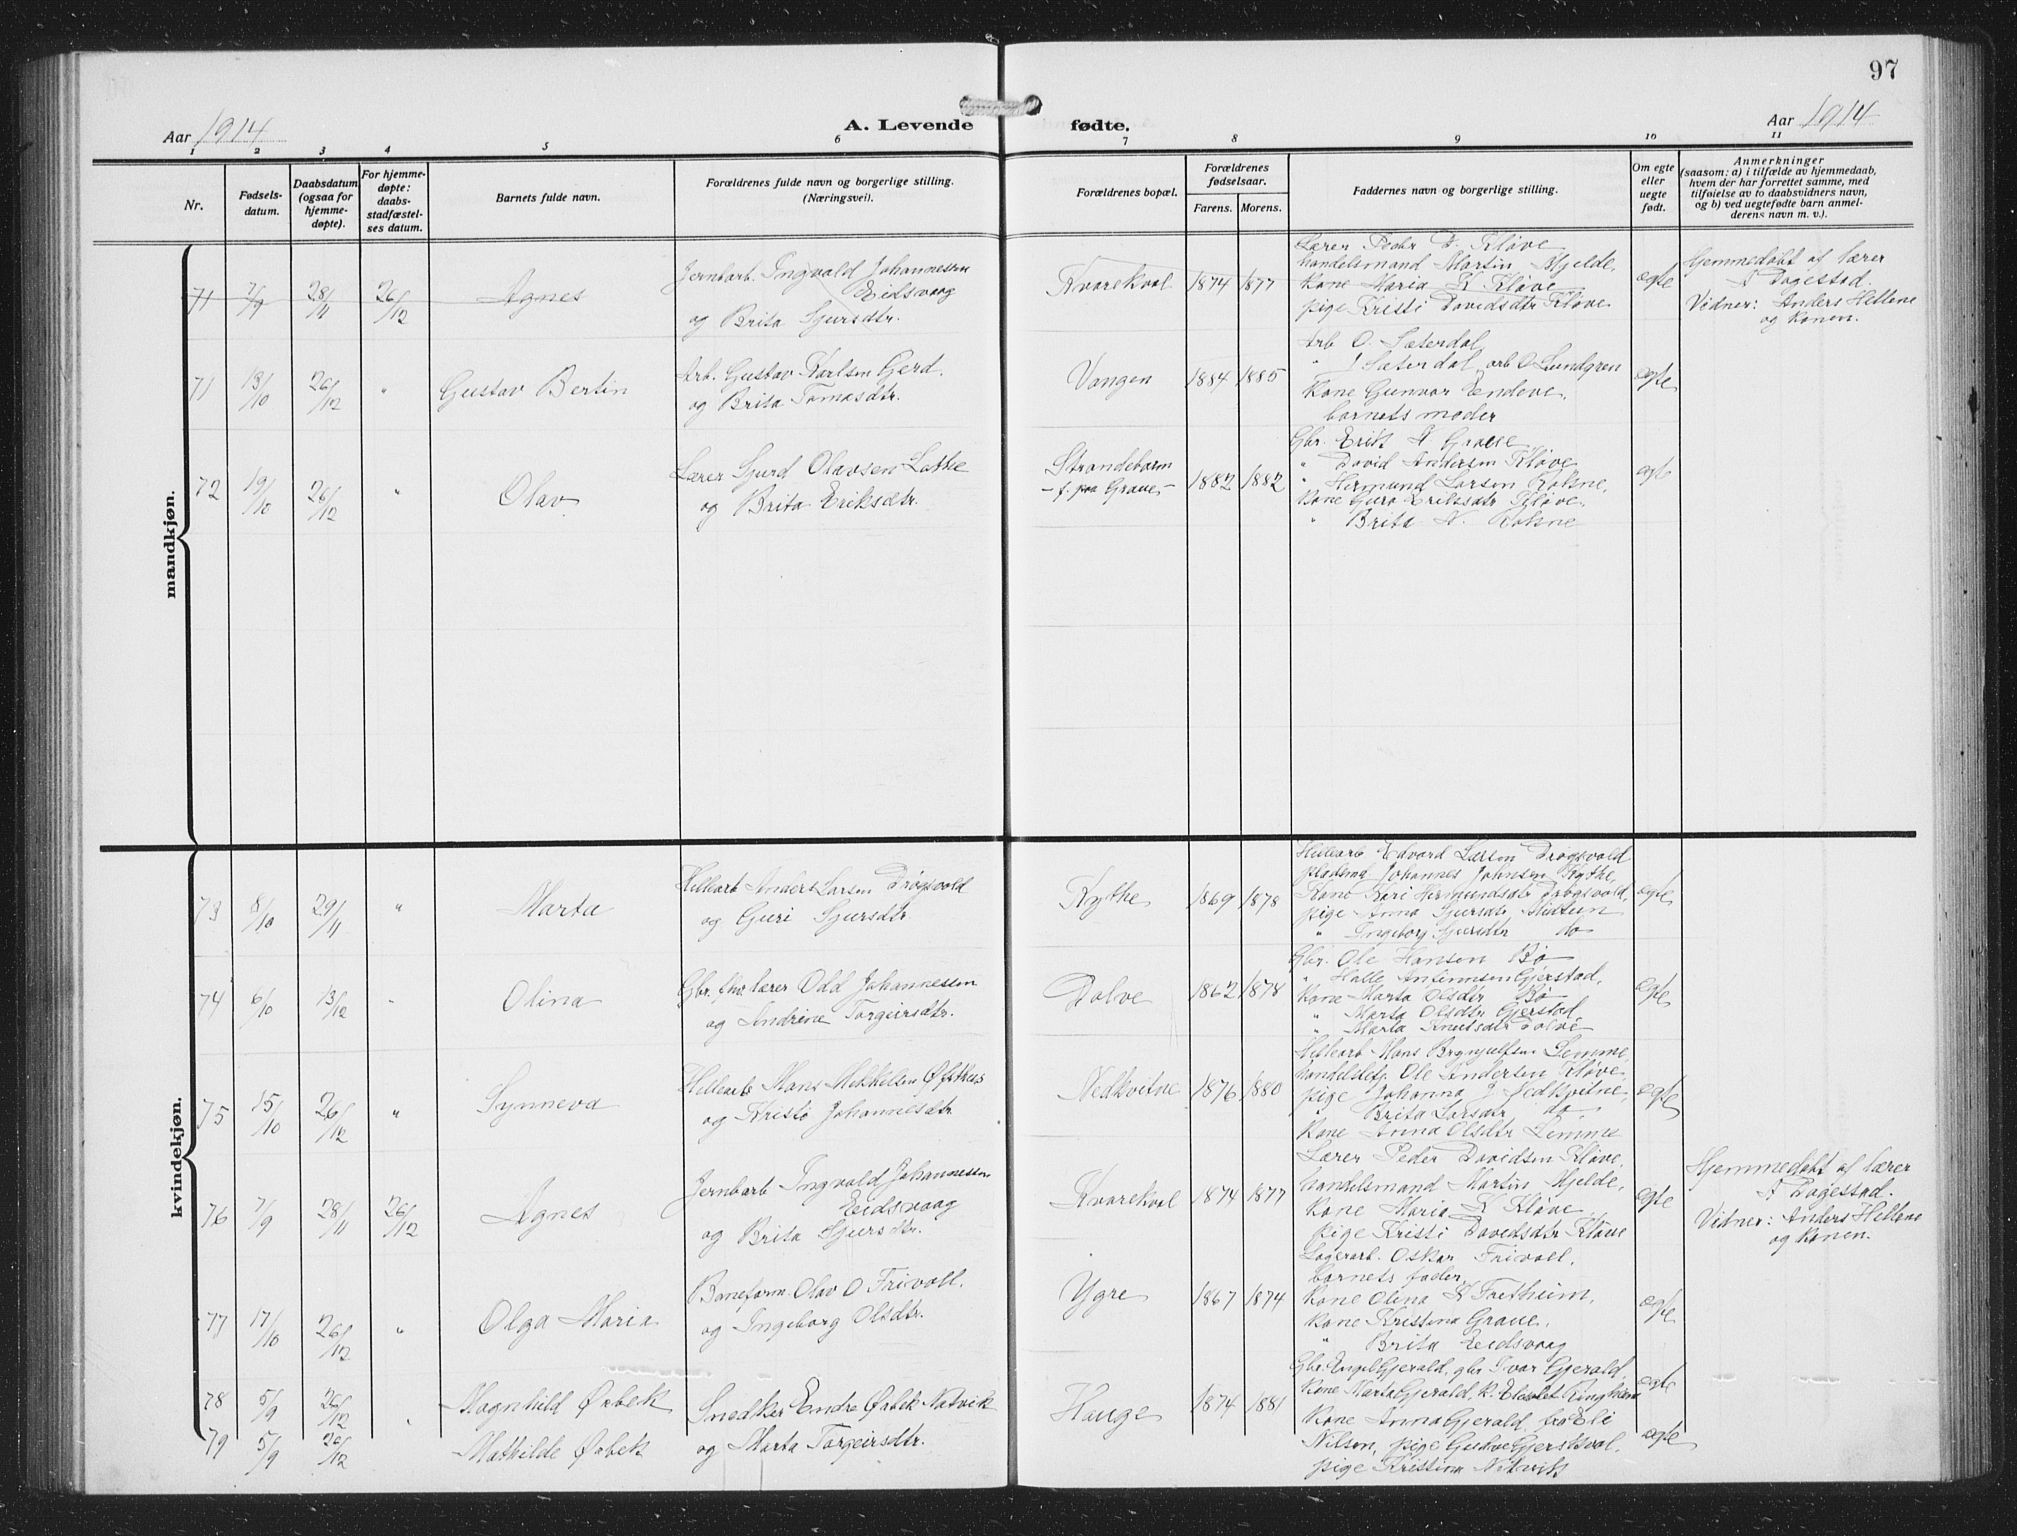 97
Aar 1914
A. Levende fødte.
Aar 1914
1 2 3 4 5 6 7 8 9 10 11
Nr.
Fødsels-
datum.
Daabsdatum
(ogsaa for
hjemme-
døpte).
For hjemme-
døpte:
daabs-
stadfæstel-
ses datum.
Barnets fulde navn.
Forældrenes fulde navn og borgerlige stilling.
(Næringsvei).
Forældrenes bopæl.
Forældrenes
fødselsaar.
Farens. Morens.
Faddernes navn og borgerlige stilling.
Om egte
eller
uegte
født.
Anmerkninger
(saasom: a) i tilfælde av hjemmedaab,
hvem der har forrettet samme, med
tilføielse av to daabsvidners navn,
og b) ved uegtefødte barn anmel-
derens navn m. v.).
mandkjøn.
71 7/9 28/11 26/12 Agnes
Jernbarb. Ingvald Johannessen
Eidsvaag
og Brita Sjursdtr.
Kvarekval 1874 1877
Lærer Peder D. Kløve
Handelsmand Martin Mjelde,
Kone Maria K Kløve
pige Kristi Davidsdtr Kløve
egte
Hjemmedøbt af lærer
A Dagestad.
Vidner: Anders Hellene
og konen.
71 13/10 26/12 " Gustav Bertin
Arb. Gustav Karlsen Gjerd.
og Brita Tomasdtr.
Vangen 1884 1885
Arb O. Sæterdal
" I Sæterdal, arb O Lundgren
Kone Gunvor Endeve,
barnets moder
egte
72 19/10 26/12 " Olav
Lærer Sjurd Olavsen Lothe
og Brita Eriksdtr.
Strandebarm
- f. paa Graue - 1882 1882
Gbr. Erik N. Graue
" David Andersen Kløve
" Hermund Larsen Rokne,
Kone Guro Eriksdtr Kløve,
" Brita N. Rokne
egte
kvindekjøn.
73 8/10 29/11 " Marta
Hellearb Anders Larsen Drøgsvold
og Guri Sjursdtr.
Kythe 1869 1878
Hellearb Edvard Larsen Drøgsvold
pladsmd Johannes Johnsen Kythe,
Kone Kari Hermundsdtr Drøgsvold,
pige Anna Sjursdtr Midtun
" Ingeborg Sjursdtr do
egte
74 6/10 13/12 " Olina
Gbr. fhv. lærer Odd Johannessen
og Andrine Torgeirsdtr.
Dolve 1862 1878
Gbr. Ole Hansen Bø
" Halle Gjerstad,
Kone Marta Olsdtr Bø
" Marta Olsdtr Gjerstad
" Marta Knutsdtr Dolve
egte
75 15/10 26/12 " Synneva
Hellearb Hans Mikkelsen Øfsthus
og Kristi Johannesdtr.
Nedkvitne 1876 1880
Hellearb Hans Brynjulfsen Lemme,
Handelsbetj. Ole Andersen Kløve,
pige Johanna J. Nedkvitne,
" Brita Larsdtr do
Kone Anna Olsdtr Lemme
egte
76 7/9 28/11 26/12 Agnes
Jernbarb Ingvald Johannessen
Eidsvaag
og Brita Sjursdtr.
Kvarekval 1874 1877
Lærer Peder Davidsen Kløve,
Handelsmand Martin Mjelde,
Kone Maria K Kløve
pige Kristi Davidsdtr Kløve
egte
Hjemmedøbt af lærer
A Dagestad.
Vidner: Anders Hellene
og konen.
77 17/10 26/12 " Olga Maria
Baneform. Olav O Frivoll.
og Ingeborg Olsdtr.
Ygre 1867 1874
Lagerarb. Oskar Frivoll,
barnets fader,
Kone Olina K Fretheim,
Kone Kristina Graue,
" Brita Eidsvaag
egte
78 5/9 26/12 " Magnhild Ørbek
79 5/9 26/12 Mathilde Ørbek
Snedker Endre Ørbek Natvik
og Marta Torgeirsdtr.
Hauge 1874 1881
Gbr. Engel Gjerald, gbr Ivar Gjerald,
Kone Marta Gjerald, k. Ringheim
Kone Anna Gjerald, fru Eli
Nilsen, pige Gjerskval,
pige Kristina Natvik
egte
egte